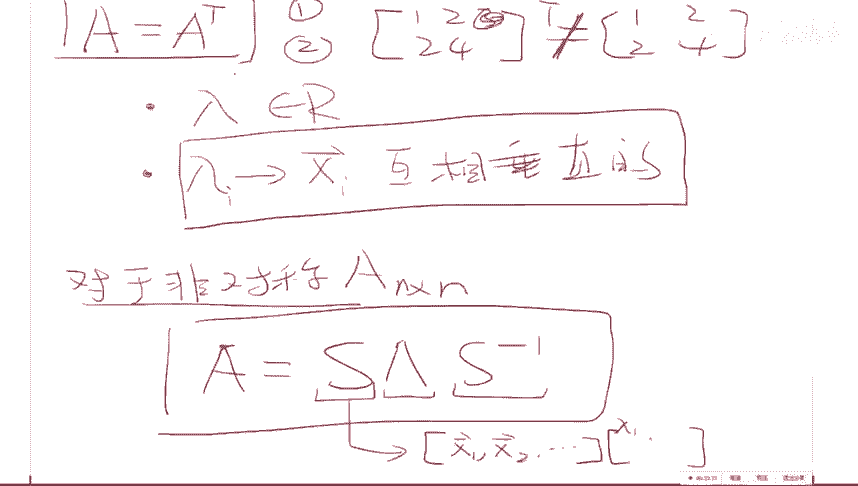 A = Aᵀ ① ② [1 2 2 4]ᵀ ≠ [1 2 2 4]
• λ ∈ R
• λᵢ → x⃗ᵢ 互相垂直的
对于非对称 Aₙₓₙ
A = S Λ S⁻¹
[x⃗₁, x⃗₂ ...] [λ₁ ·. ]